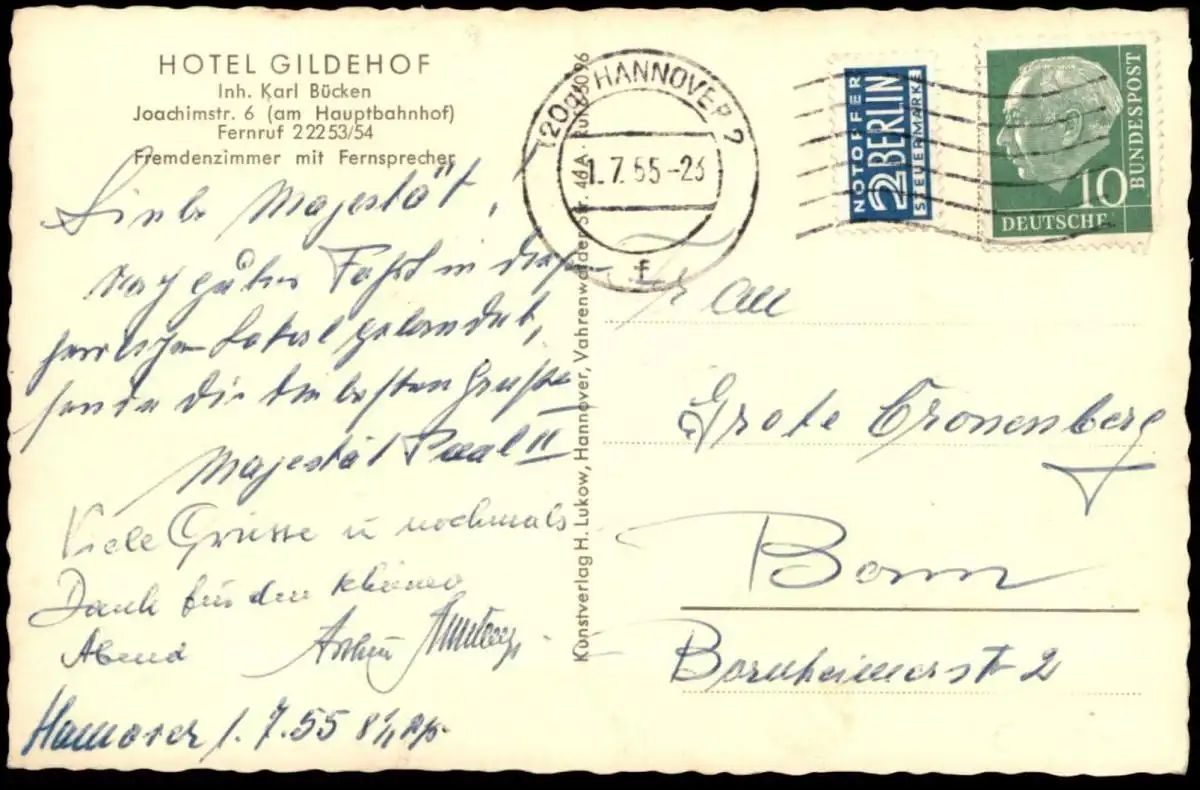 HOTEL GILDEHOF
Inh. Karl Bücken
Joachimstr. 6 (am Hauptbahnhof)
Fernruf 22253/54
Fremdenzimmer mit Fernsprecher
Liebe Majestät,
nach guter Fahrt in diesem
herrlichen Lokal gelandet,
sende die besten Grüße
Majestät Paul II
Viele Grüsse u nochmals
Dank für den schönen
Abend
Hannover 1.7.55
Kunstverlag H. Lukow, Hannover, Vahrenwalder Str. 40A · Ruf
HANNOVER 2
1.7.55-23
f
NOTOPFER
2 BERLIN
STEUERMARKE
10
DEUTSCHE
BUNDESPOST
Frau
Grote Cronenberg
Bonn
Bornheimerstr 2